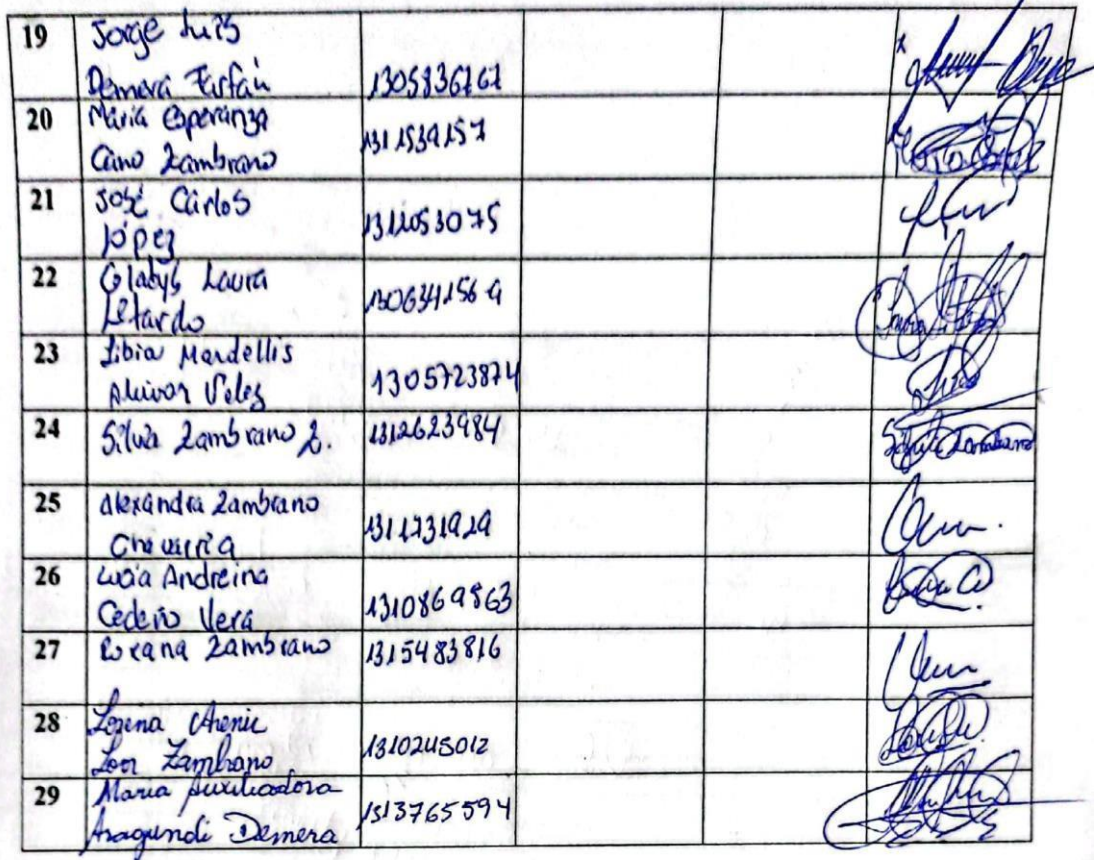 19 Jorge Luis
Demera Farfán 1305836767
20 María Esperanza
Cano Zambrano 1311539157
21 José Carlos
López 1311053075
22 Gladys Laura
130634156
23 Libia Mardellis
Velez 1305723874
24 Silvia Zambrano Z. 1312623984 Silvia Zambrano
25 Alexandra Zambrano
1311731929
26 Lucía Andreina
Cedeño Vera 1310869863
27 Roxana Zambrano 1315483816
28 Lorena
Loor Zambrano 1310245012
29 María Auxiliadora
Aragundi Demera 1313765594